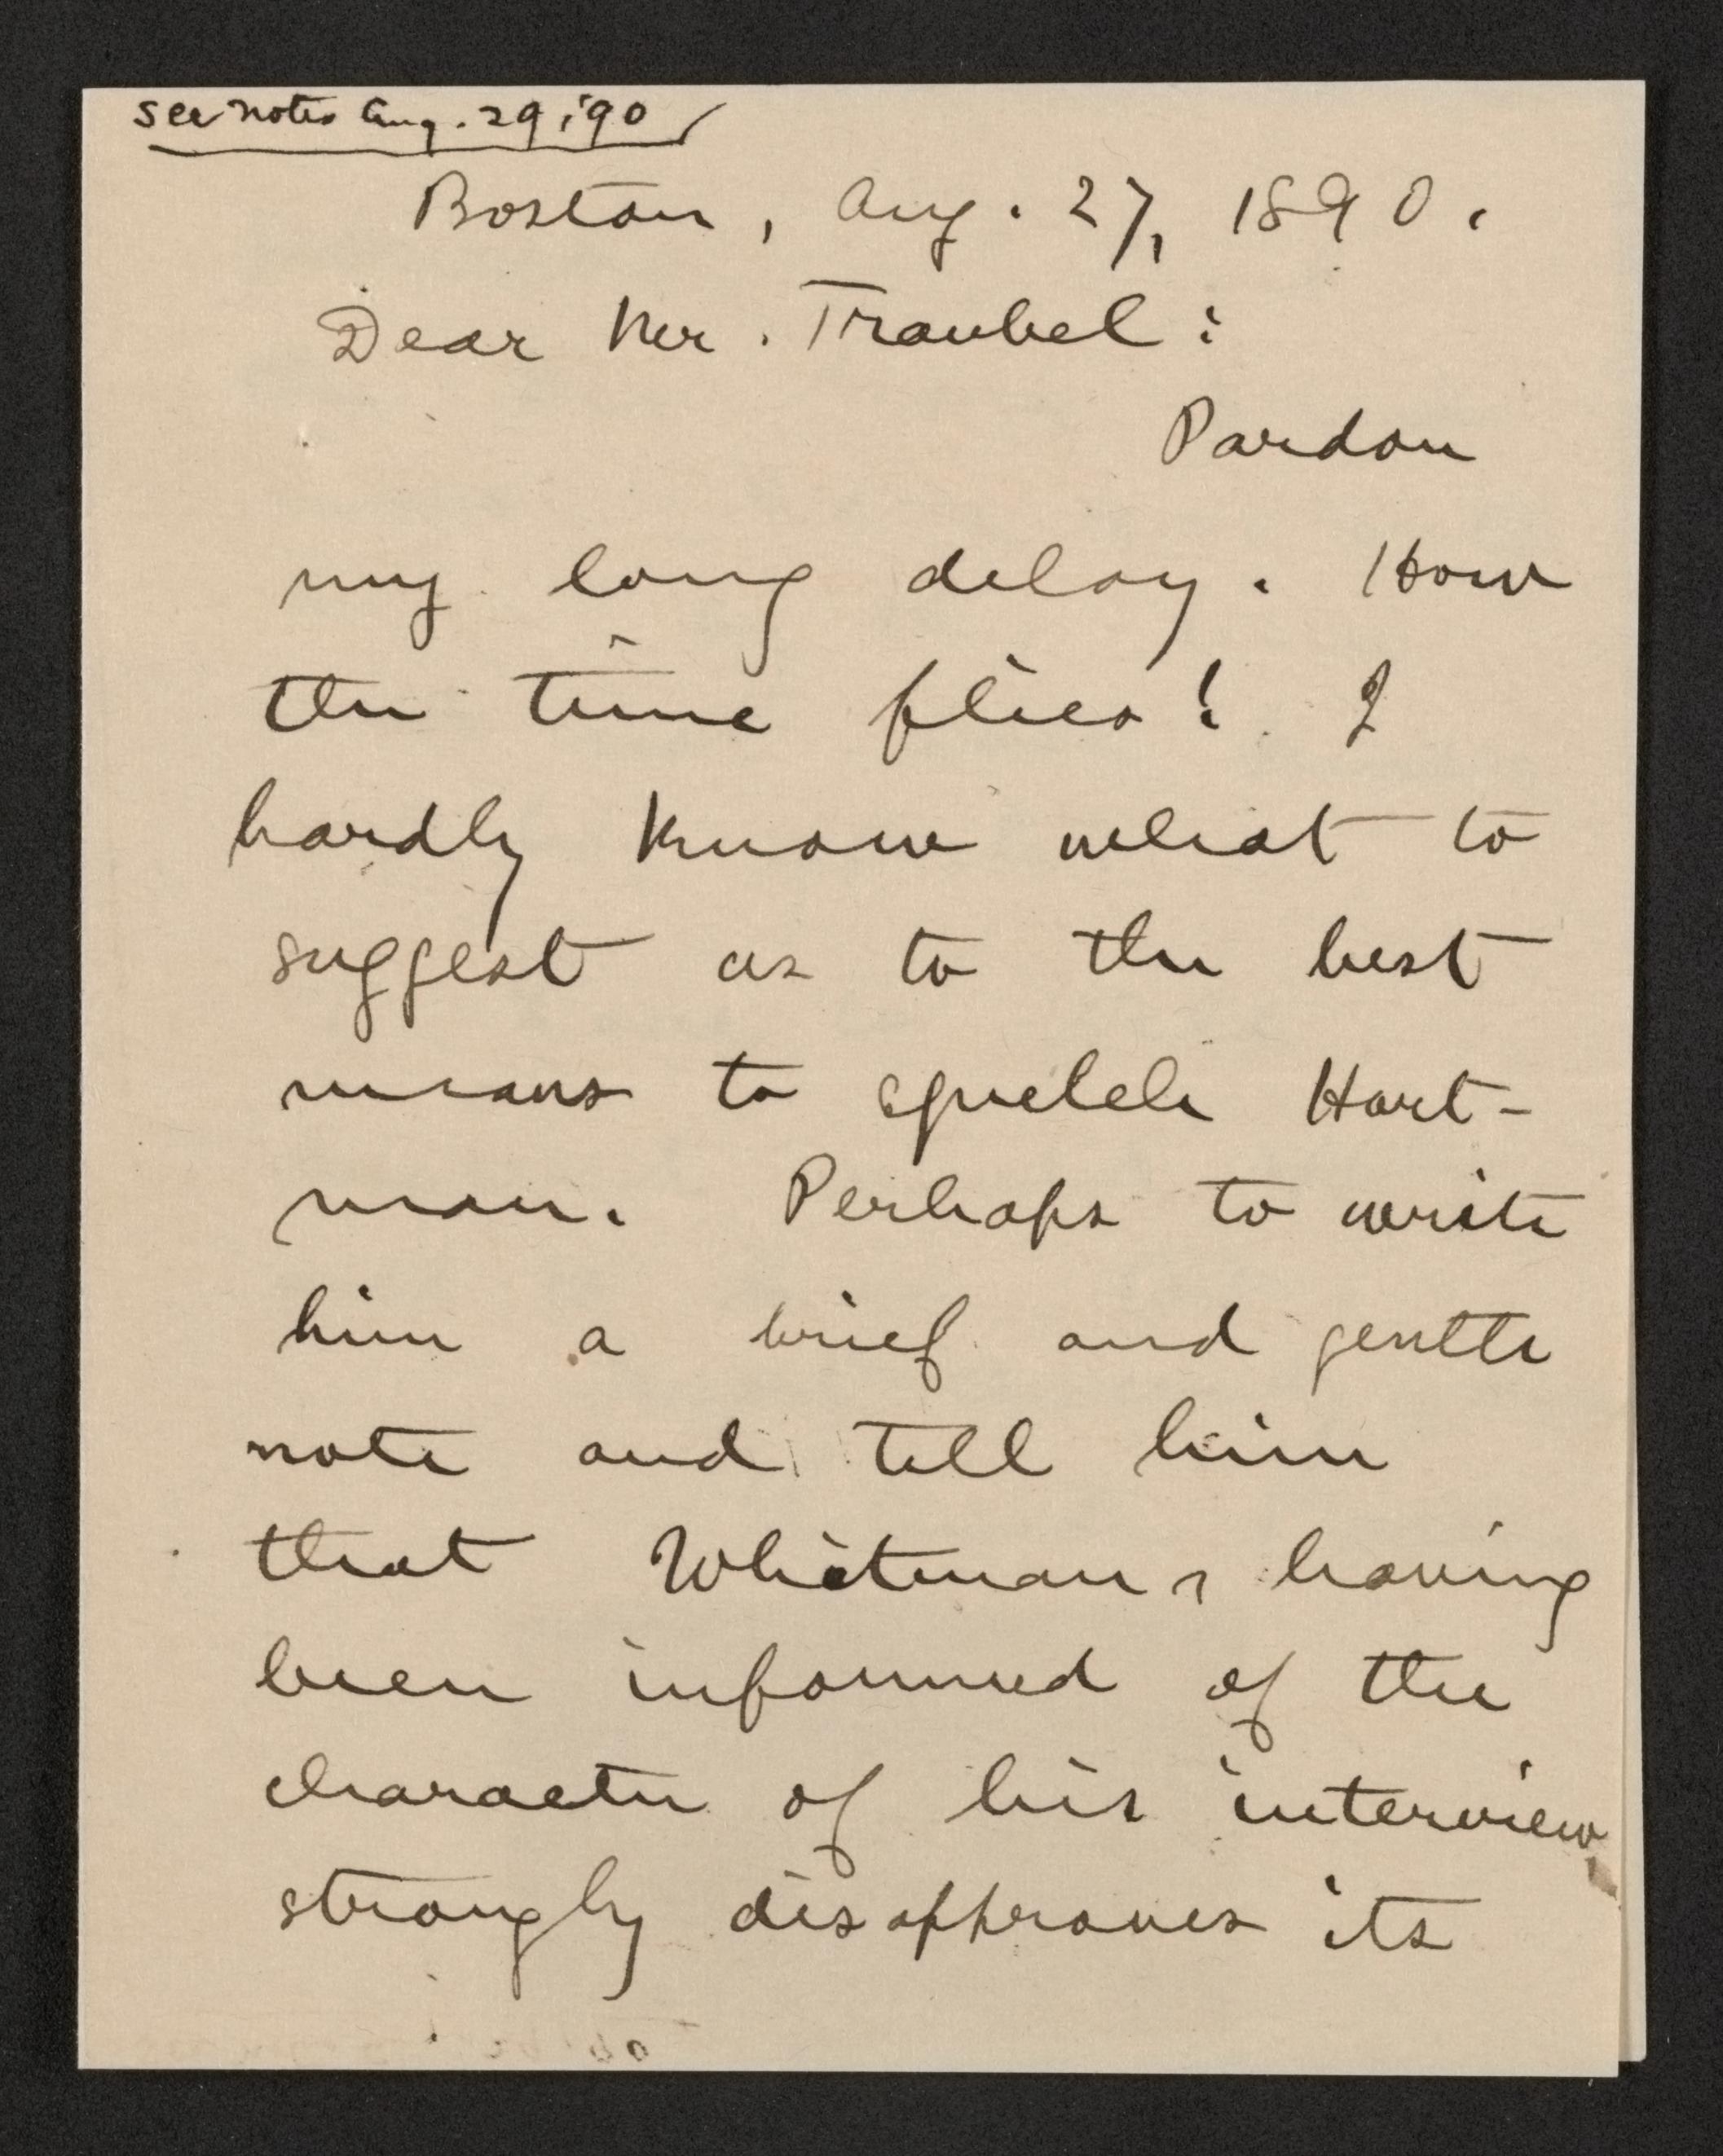 see notes Aug. 29, '90
Boston, Aug. 27, 1890.
Dear Mr. Traubel:
Pardon
my long delay. How
the time flies! I
hardly know what to
suggest as to the best
means to squelch Hart-
man. Perhaps to write
him a brief and gentle
note and tell him
that Whitman, having
been informed of the
character of his interview
strongly disapproves its